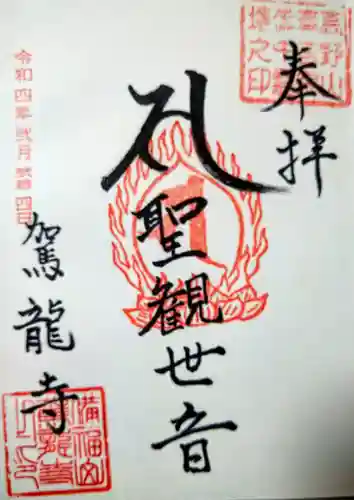 奉拝
聖観世音
令和四年弐月弐拾四日
駕龍寺